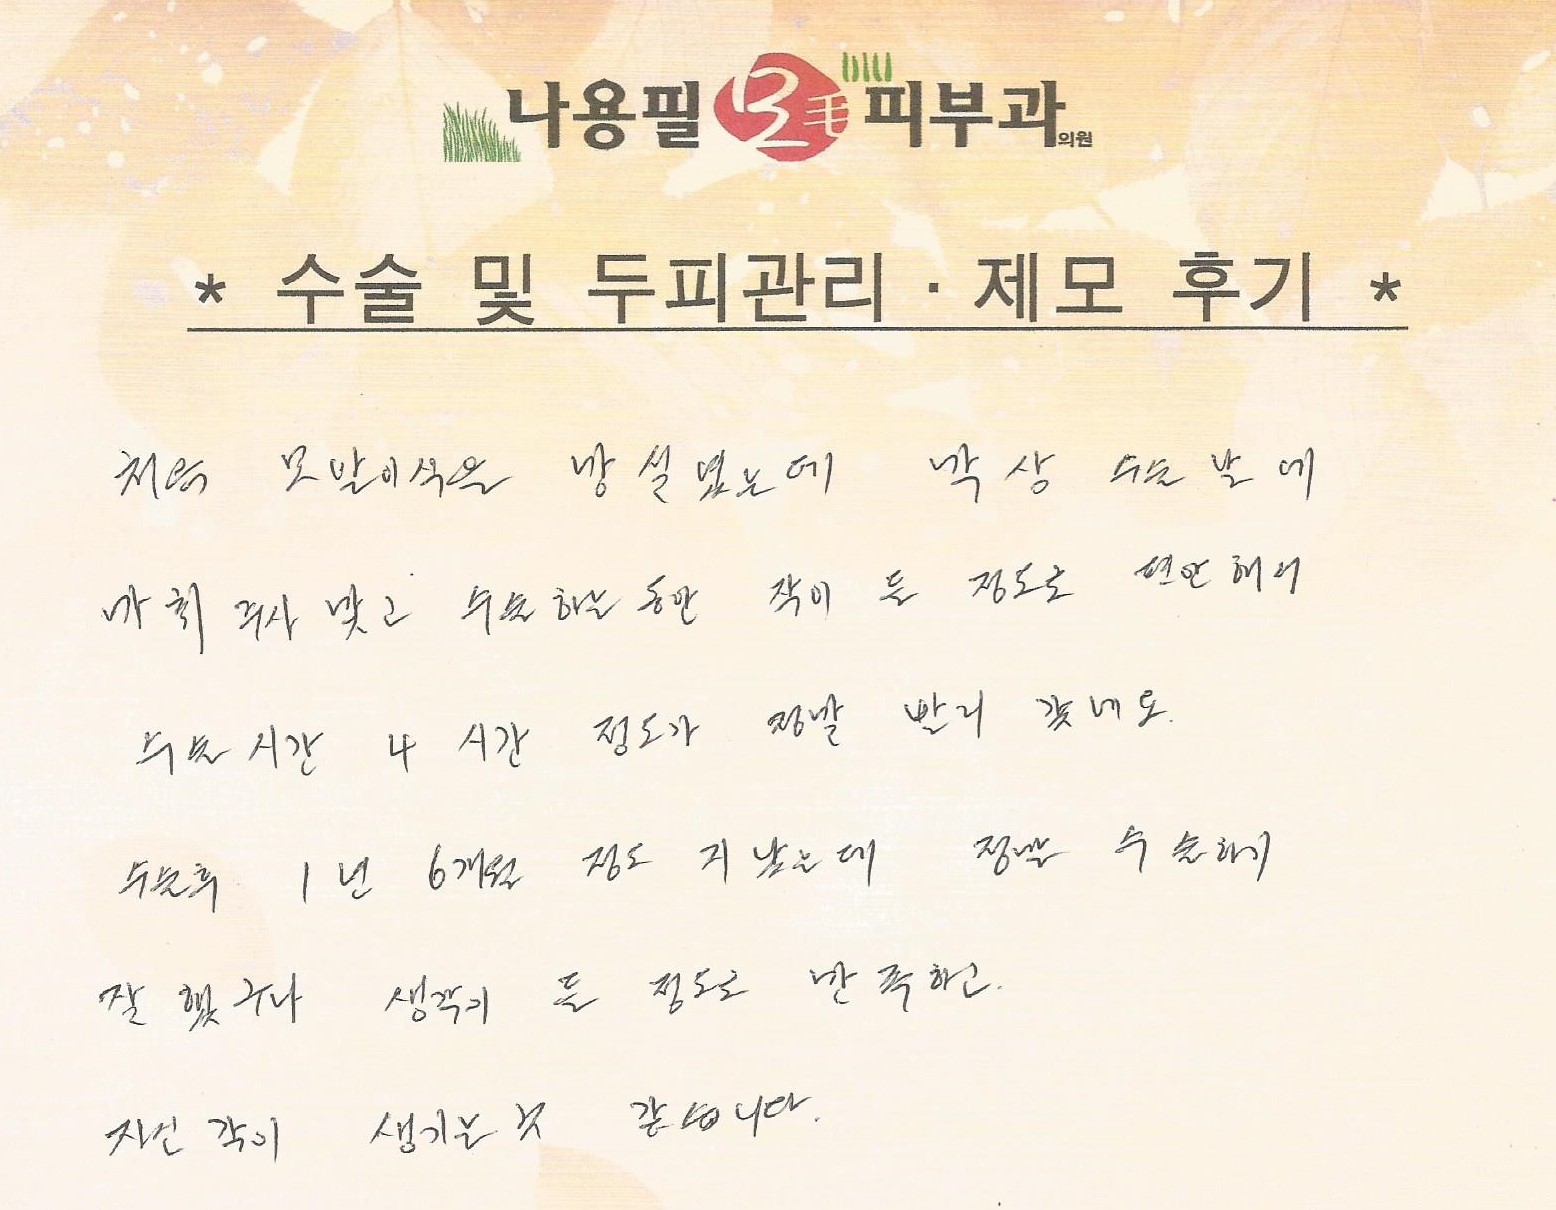 나용필 모毛 피부과의원
* 수술 및 두피관리 · 제모 후기 *
처음 모발이식은 망설였는데 막상 수술날에
마취주사 맞고 수술하는동안 잠이 들 정도로 편안해서
수술시간 4시간 정도가 정말 빨리 갔네요.
수술후 1년 6개월 정도 지났는데 정말 수술하기
잘 했구나 생각이 들 정도로 만족하고.
자신감이 생기는것 같습니다.